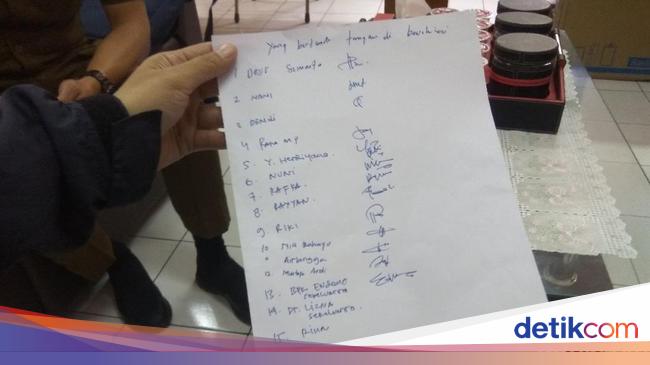 Yang bertanda tangan di bawah ini
1 DEDE Sunarto
2 NANI
3 DENDI
4
5. Y. Heriyana.
6 NUNI
7. RAFKA.
8. RAYYAN.
9. RIKI
10. Mia Rahayu
11 Airlangga
12
13. BPK ENDANG
14. DT. LIZNA
15. Rina
detikcom